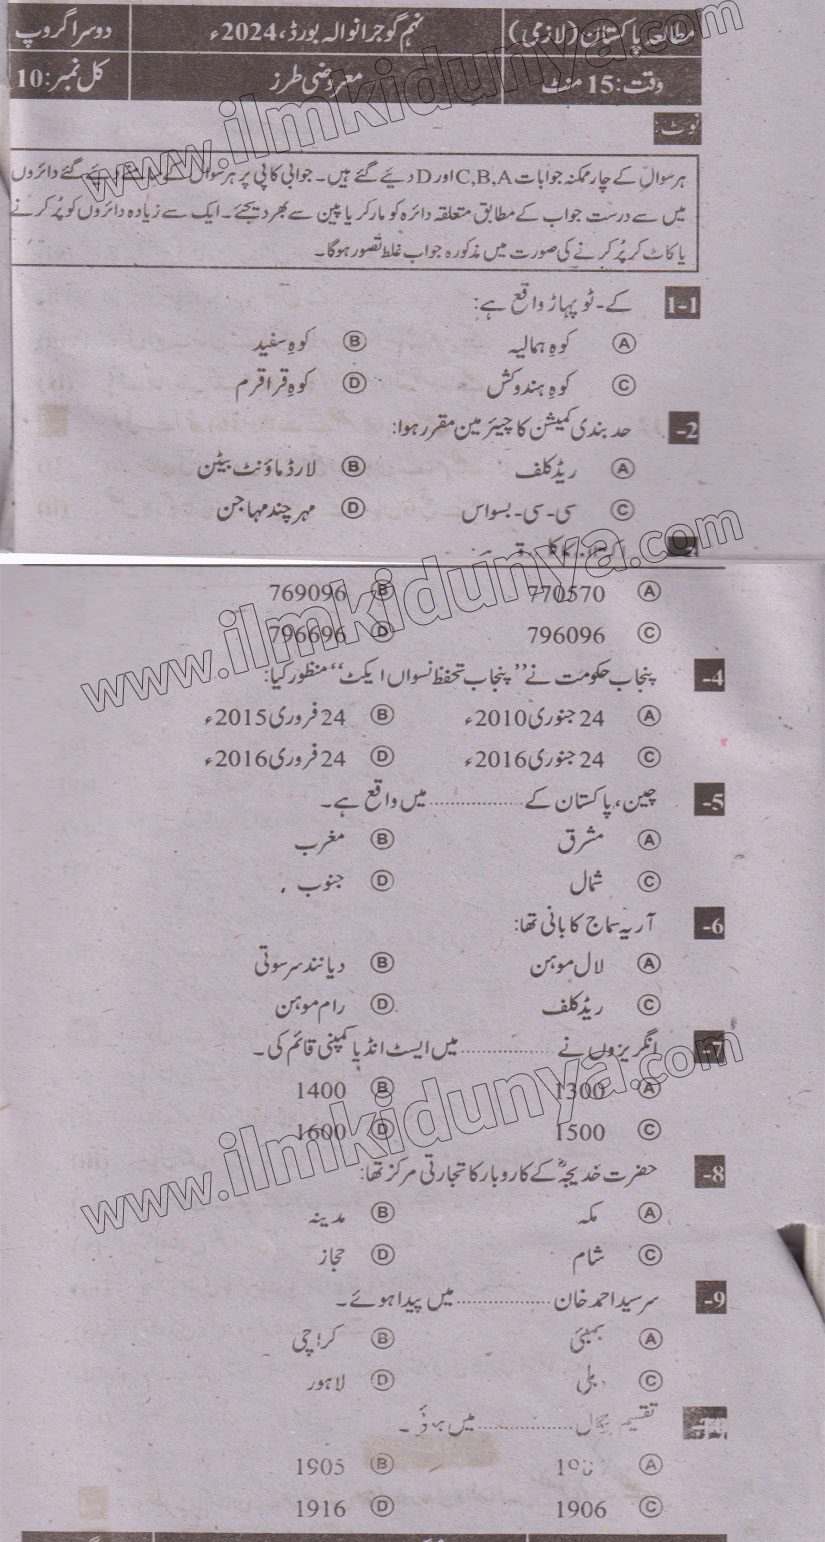 مطالعہ پاکستان (لازمی) نہم گوجرانوالہ بورڈ، 2024ء دوسرا گروپ
وقت: 15 منٹ معروضی طرز کل نمبر: 10
نوٹ:
ہر سوال کے چار ممکنہ جوابات C,B,A اور D دیئے گئے ہیں۔ جوابی کاپی پر ہر سوال کے سامنے دیئے گئے دائروں
میں سے درست جواب کے مطابق متعلقہ دائرہ کو مارکر یا پین سے بھر دیجئے۔ ایک سے زیادہ دائروں کو پُر کرنے
یا کاٹ کر پُر کرنے کی صورت میں مذکورہ جواب غلط تصور ہوگا۔
1-1 کے-ٹو پہاڑ واقع ہے:
A کوہِ ہمالیہ B کوہِ سفید
C کوہِ ہندوکش D کوہِ قراقرم
2- حد بندی کمیشن کا چیئرمین مقرر ہوا:
A ریڈ کلف B لارڈ ماؤنٹ بیٹن
C سی-سی-بسواس D مہر چند مہاجن
A 770570 B 769096
C 796096 D 796696
4- پنجاب حکومت نے ”پنجاب تحفظ نسواں ایکٹ“ منظور کیا:
A 24 جنوری 2010ء B 24 فروری 2015ء
C 24 جنوری 2016ء D 24 فروری 2016ء
5- چین، پاکستان کے .............. میں واقع ہے۔
A مشرق B مغرب
C شمال D جنوب
6- آریہ سماج کا بانی تھا:
A لال موہن B دیانند سرسوتی
C ریڈ کلف D رام موہن
7- انگریزوں نے .............. میں ایسٹ انڈیا کمپنی قائم کی۔
A 1300 B 1400
C 1500 D 1600
8- حضرت خدیجہؓ کے کاروبار کا تجارتی مرکز تھا:
A مکہ B مدینہ
C شام D حجاز
9- سرسید احمد خان .............. میں پیدا ہوئے۔
A بمبئی B کراچی
C دہلی D لاہور
تقسیم بنگال .............. میں ہوئی۔
A B 1905
C 1906 D 1916
www.ilmkidunya.com
www.ilmkidunya.com
www.ilmkidunya.com